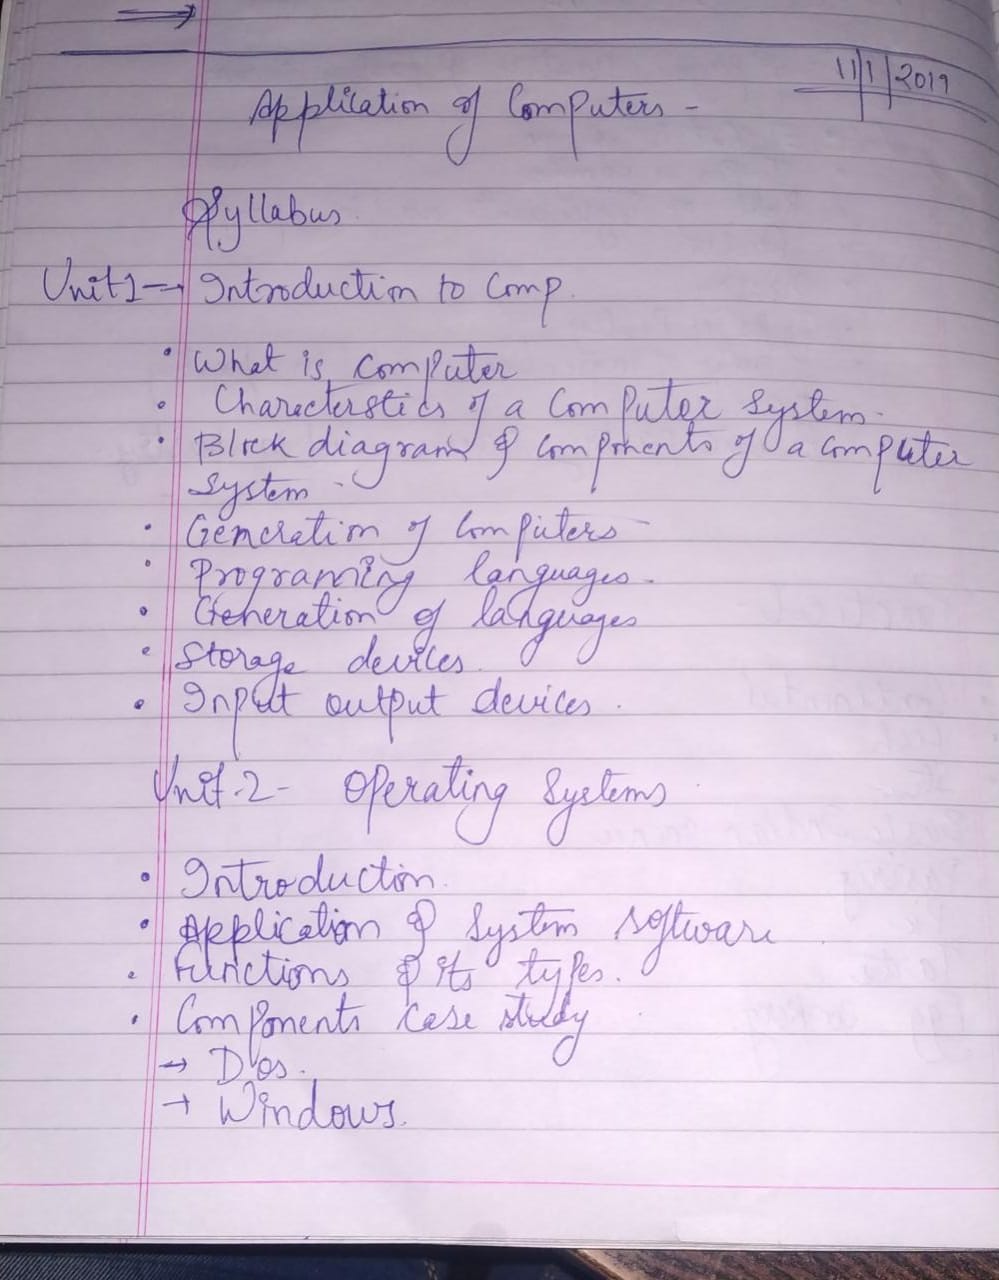 11/1/2019
Application of Computers -
Syllabus
Unit 1 → Introduction to Comp.
• What is computer
• Characterstics of a Computer System.
• Block diagram & components of a computer
system.
• Generation of Computers
• Programing languages.
• Generation of languages
• Storage devices.
• Input output devices.
Unit-2- Operating Systems
• Introduction.
• Application & System software
• Functions & its types.
• Components case study
→ Dos.
→ Windows.